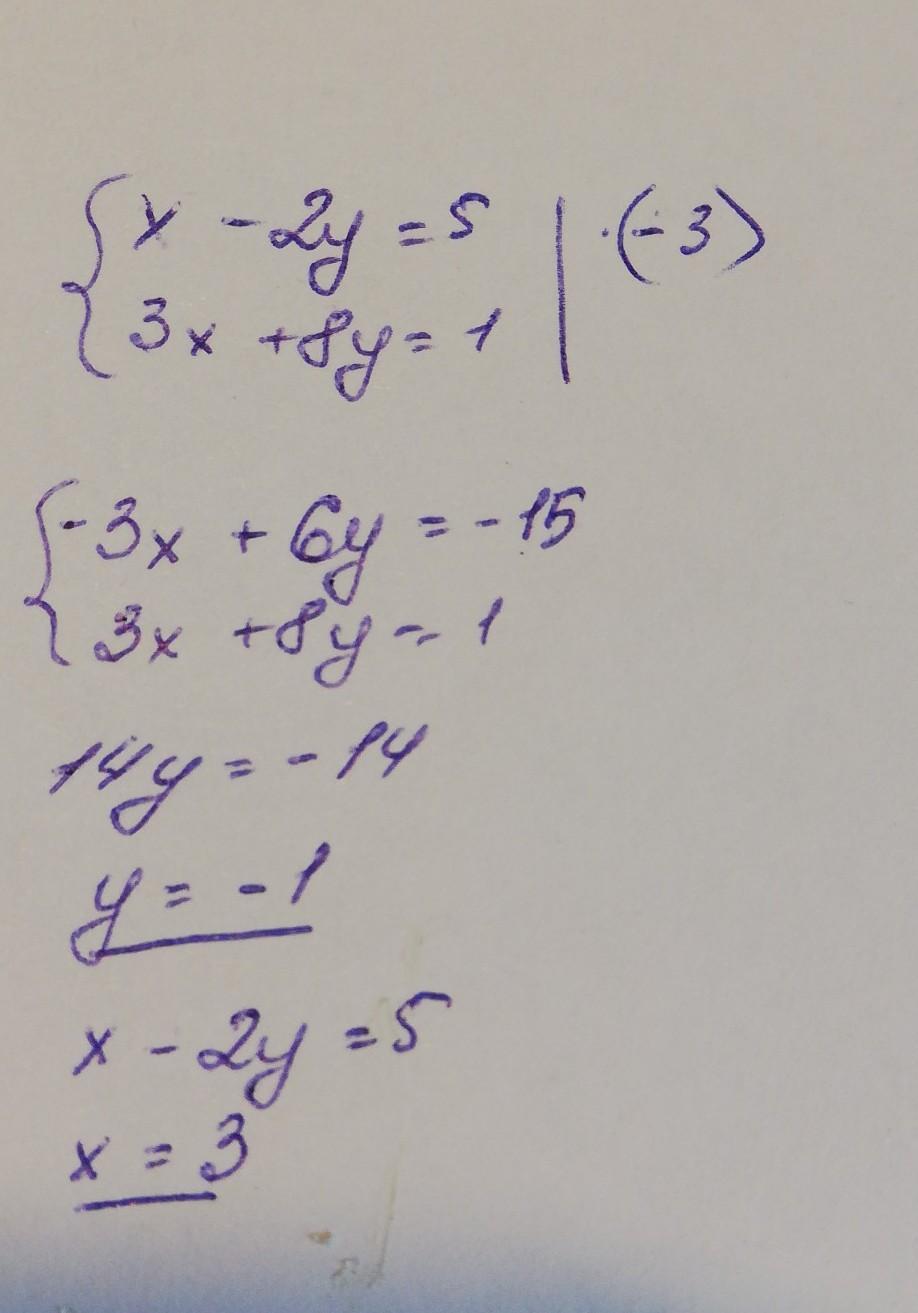 { x - 2y = 5 | ·(-3)
3x + 8y = 1
{ -3x + 6y = -15
3x + 8y = 1
14y = -14
y = -1
x - 2y = 5
x = 3